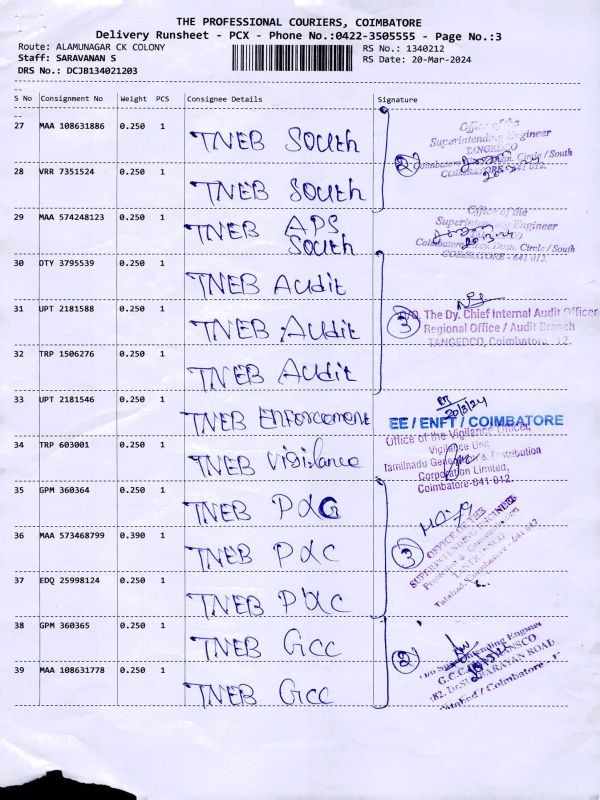 THE PROFESSIONAL COURIERS, COIMBATORE
Delivery Runsheet - PCX - Phone No.:0422-3505555 - Page No.:3
Route: ALAMUNAGAR CK COLONY
RS No.: 1340212
Staff: SARAVANAN S
RS Date: 20-Mar-2024
DRS No.: DCJB134021203
S No Consignment No Weight PCS Consignee Details Signature
27 MAA 108631886 0.250 1 TNEB South
Office of the
Superintending Engineer
TANGEDCO
28 VRR 7351524 0.250 1 TNEB South
2
Circle / South
COIMBATORE - 641 012.
29 MAA 574248123 0.250 1 TNEB APS South
Office of the
Superintending Engineer
Circle / South
COIMBATORE - 641 012.
30 DTY 3795539 0.250 1 TNEB Audit
31 UPT 2181588 0.250 1 TNEB Audit
3
The Dy. Chief Internal Audit Officer
Regional Office / Audit Branch
TANGEDCO, Coimbatore - 12.
32 TRP 1506276 0.250 1 TNEB Audit
33 UPT 2181546 0.250 1 TNEB Enforcement
20/3/24
EE / ENFT / COIMBATORE
34 TRP 603001 0.250 1 TNEB Vigilance
Office of the Vigilance Officer,
Vigilance Unit
Tamilnadu Generation & Distribution
Corporation Limited,
Coimbatore-641 012.
35 GPM 360364 0.250 1 TNEB P&G
36 MAA 573468799 0.390 1 TNEB P&C
3
OFFICE OF THE
37 EDQ 25998124 0.250 1 TNEB P&C
38 GPM 360365 0.250 1 TNEB GCC
2
39 MAA 108631778 0.250 1 TNEB GCC